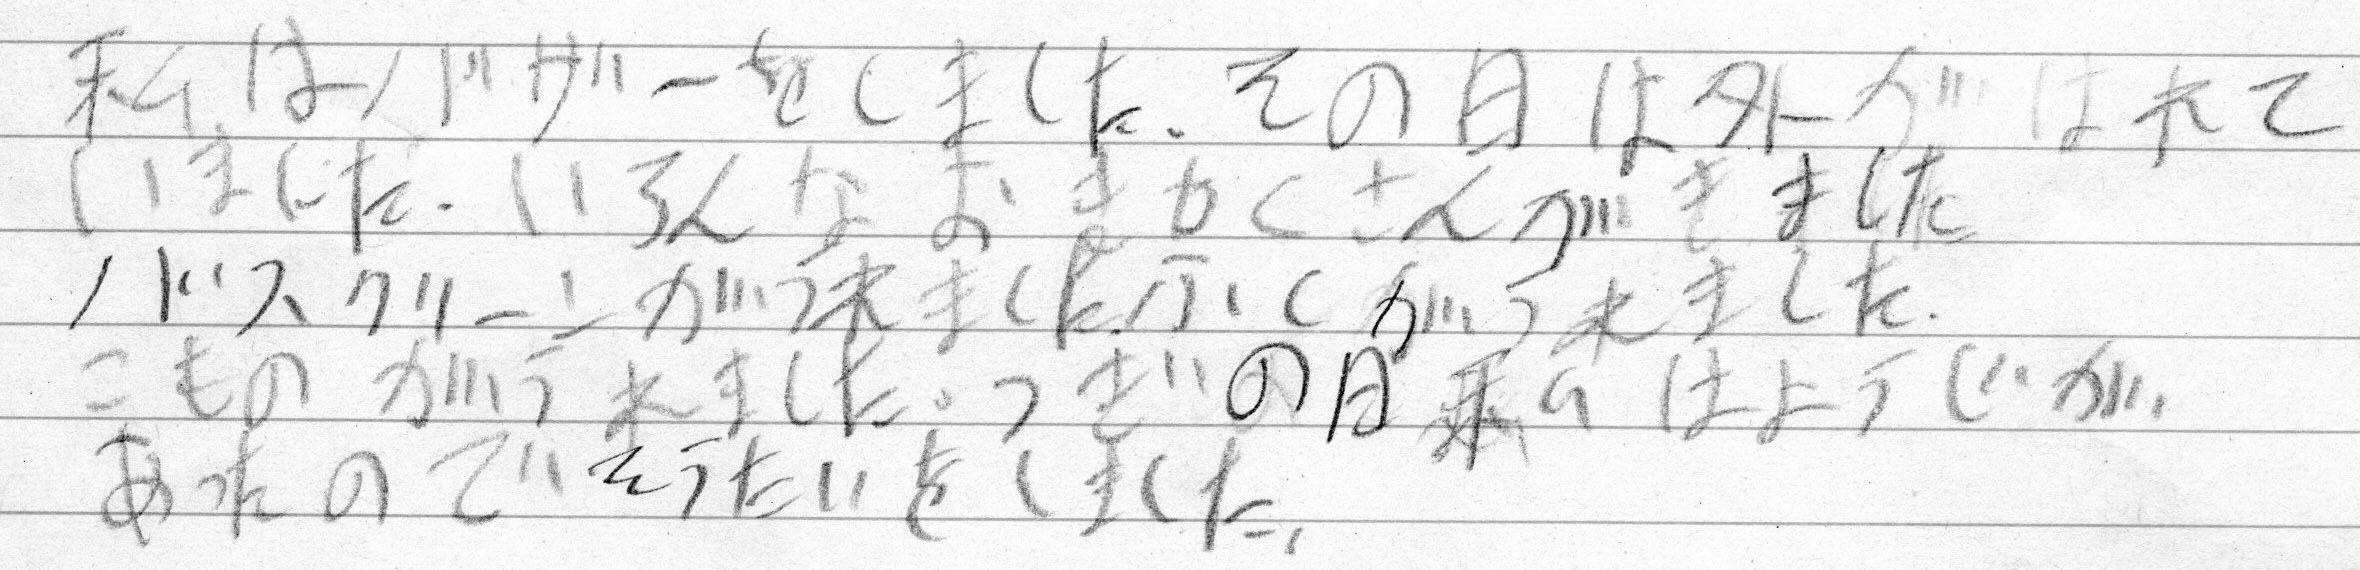 私はバザーをしました。その日は外がはれて
いました。いろんなおきゃくさんがきました
バスクリーンがうれました。ふくがうれました。
こものがうれました。つぎの日私はようじが、
あったのでそうたいをしました。